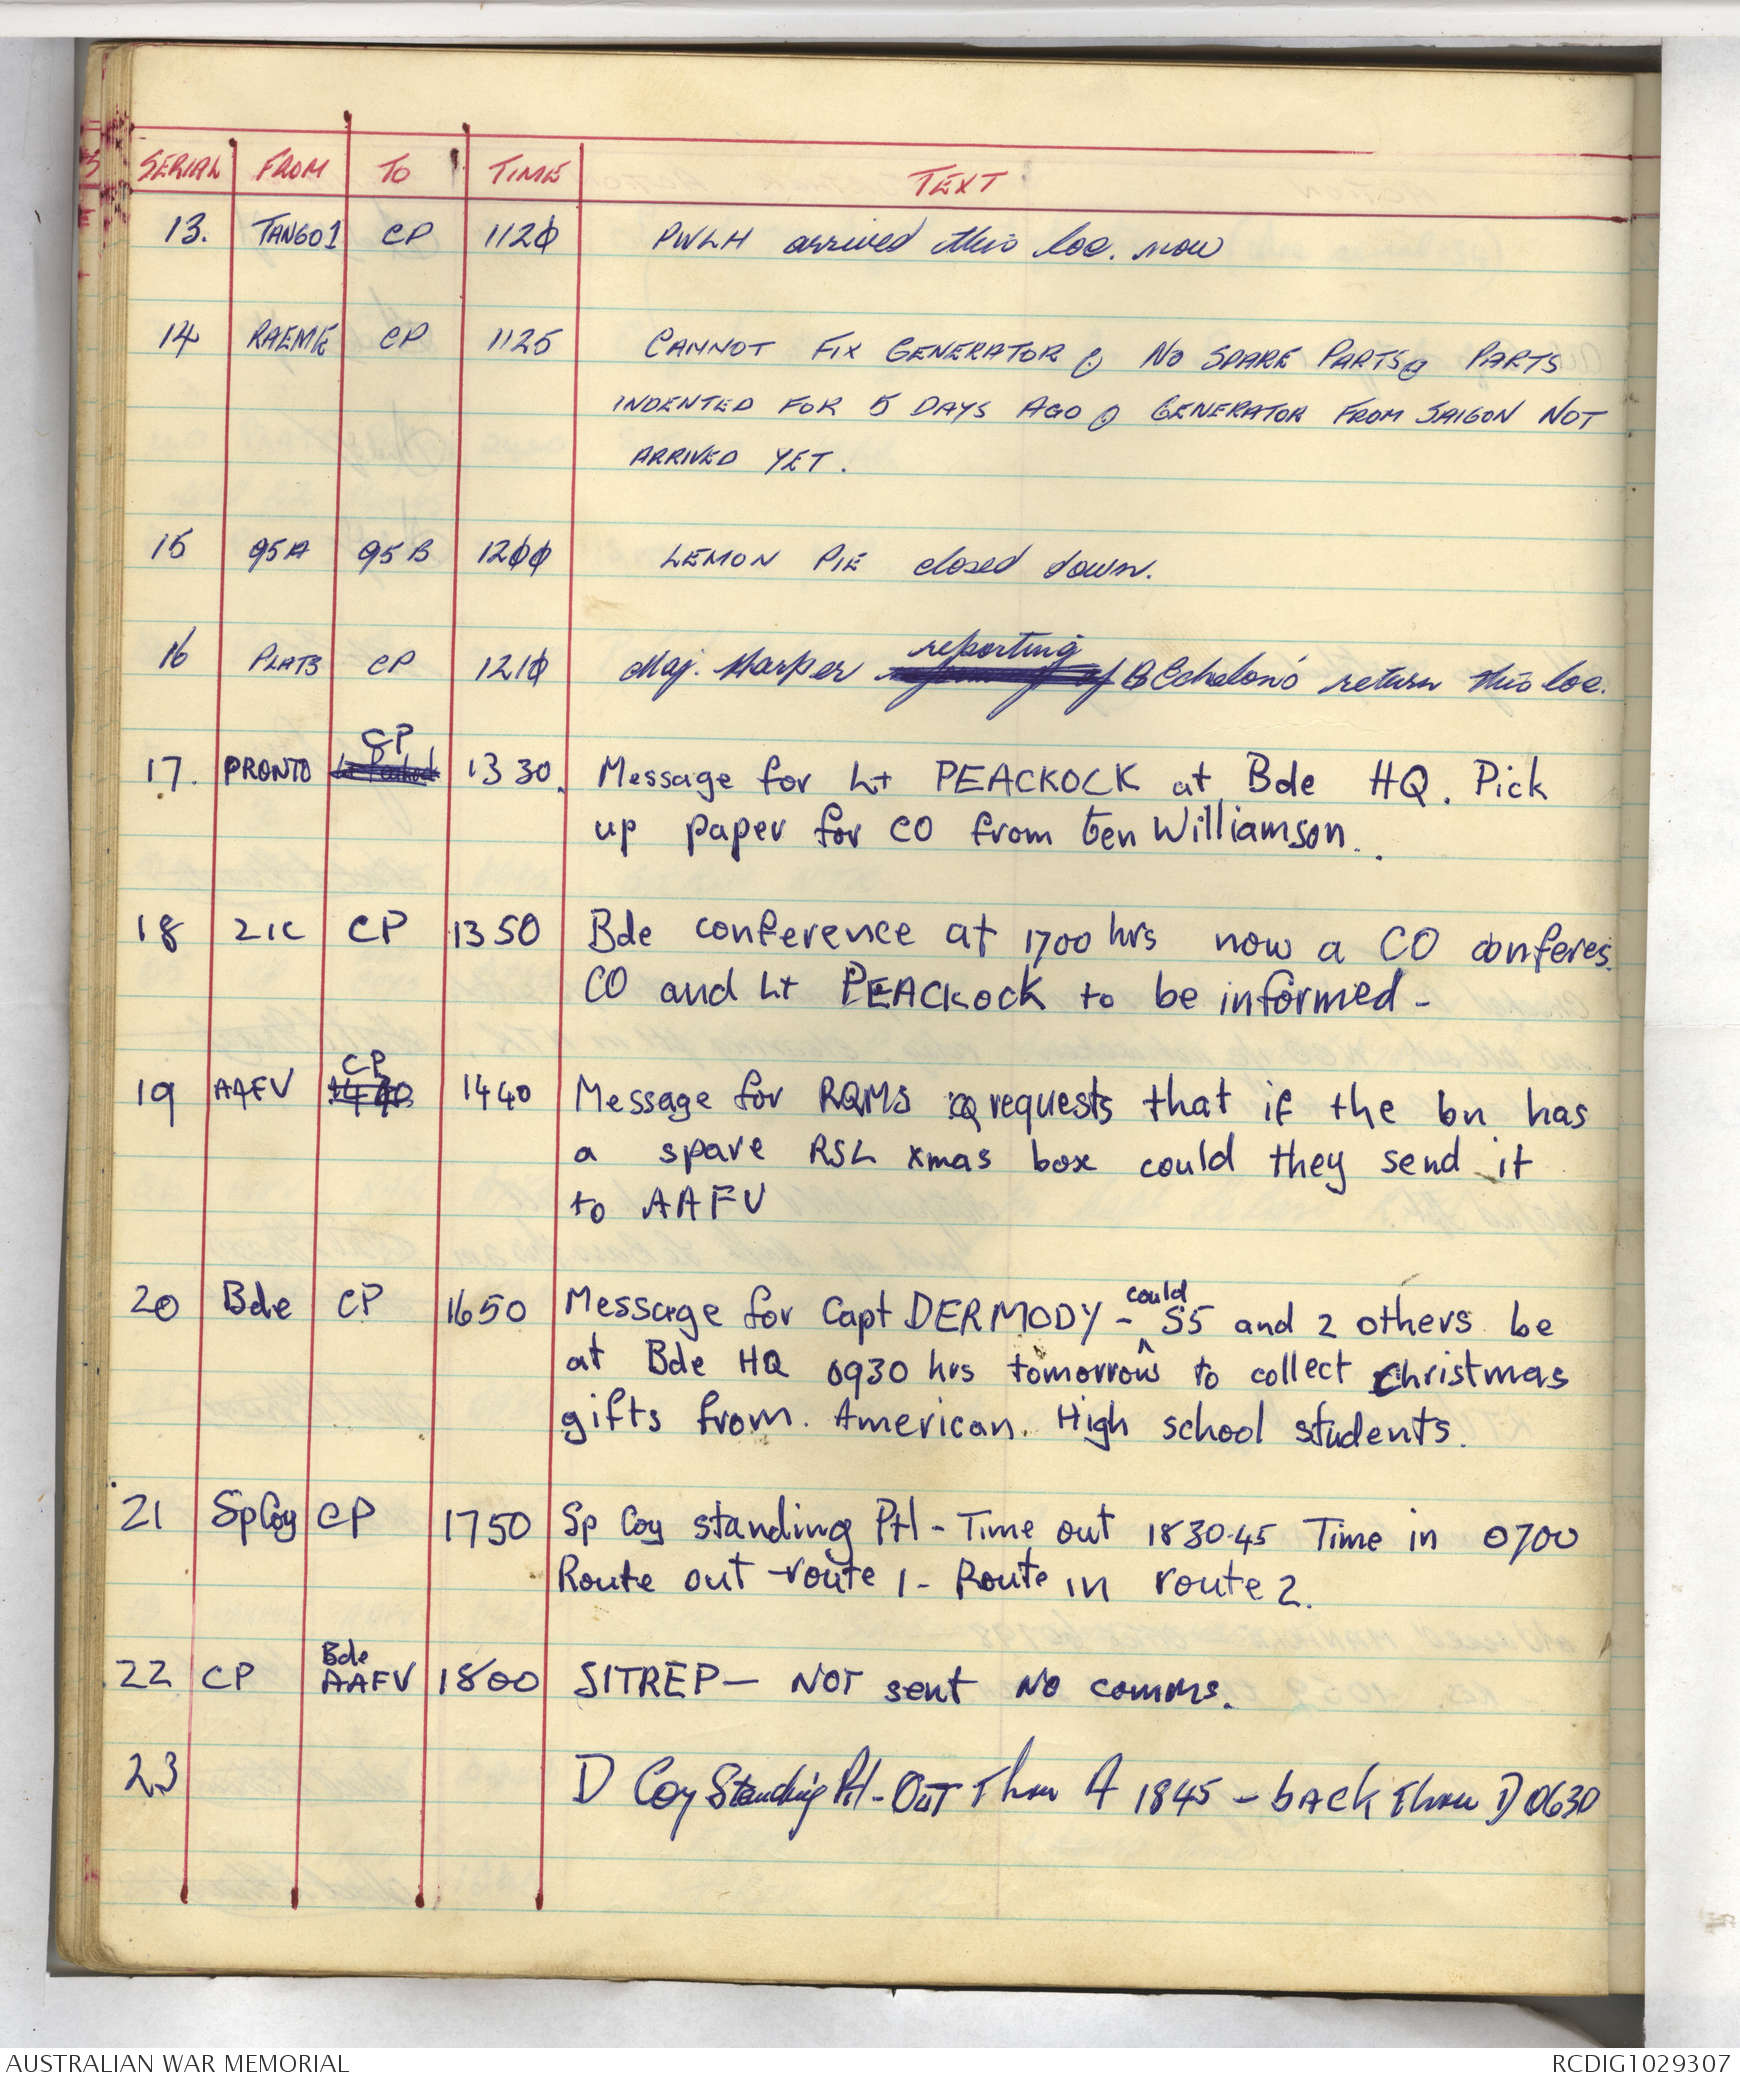 SERIAL FROM TO TIME TEXT
13. TANGO1 CP 1120 PWLH arrived this loc. now
14 RAEME CP 1125 CANNOT FIX GENERATOR . NO SPARE PARTS . PARTS
INDENTED FOR 5 DAYS AGO . GENERATOR FROM SAIGON NOT
ARRIVED YET.
15 95A 95B 1200 LEMON PIE closed down.
reporting
16 PLATS CP 1210 Maj. Harper B Echelon's return this loc.
CP
17. PRONTO 1330. Message for Lt PEACKOCK at Bde HQ. Pick
up paper for CO from Gen Williamson.
18 2IC CP 1350 Bde conference at 1700 hrs now a CO conferes.
CO and Lt PEACKOCK to be informed -
CP
19 AAFV 1440 Message for RQMS requests that if the bn has
a spare RSL xmas box could they send it
to AAFV
could
20 Bde CP 1650 Message for Capt DERMODY - S5 and 2 others be
at Bde HQ 0930 hrs tomorrow to collect Christmas
gifts from. American. High school students.
21 Sp Coy CP 1750 Sp Coy standing Ptl - Time out 1830-45 Time in 0700
Route out - route 1 - Route in route 2.
Bde
22 CP AAFV 1800 SITREP - NOT sent NO comms.
23 D Coy Standing Ptl - OUT Thru A 1845 - back Thru D 0630
AUSTRALIAN WAR MEMORIAL RCDIG1029307